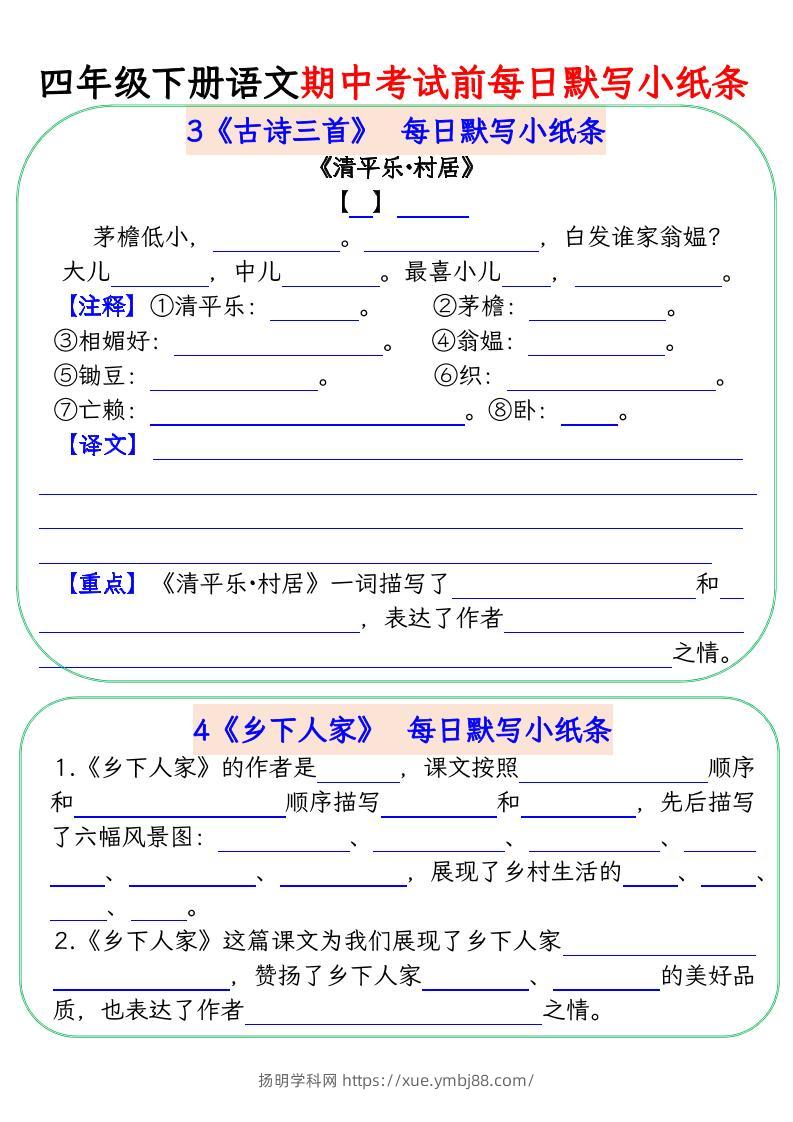 四年级下册语文期中考试前每日默写小纸条
3《古诗三首》 每日默写小纸条
《清平乐·村居》
【 】
茅檐低小， 。 ，白发谁家翁媪？
大儿 ，中儿 。最喜小儿 ， 。
【注释】①清平乐： 。 ②茅檐： 。
③相媚好： 。 ④翁媪： 。
⑤锄豆： 。 ⑥织： 。
⑦亡赖： 。⑧卧： 。
【译文】
【重点】《清平乐·村居》一词描写了 和
，表达了作者
之情。
4《乡下人家》 每日默写小纸条
1.《乡下人家》的作者是 ，课文按照 顺序
和 顺序描写 和 ，先后描写
了六幅风景图： 、 、 、
、 、 ，展现了乡村生活的 、 、
、 。
2.《乡下人家》这篇课文为我们展现了乡下人家
，赞扬了乡下人家 、 的美好品
质，也表达了作者 之情。
扬明学科网 https://xue.ymbj88.com/